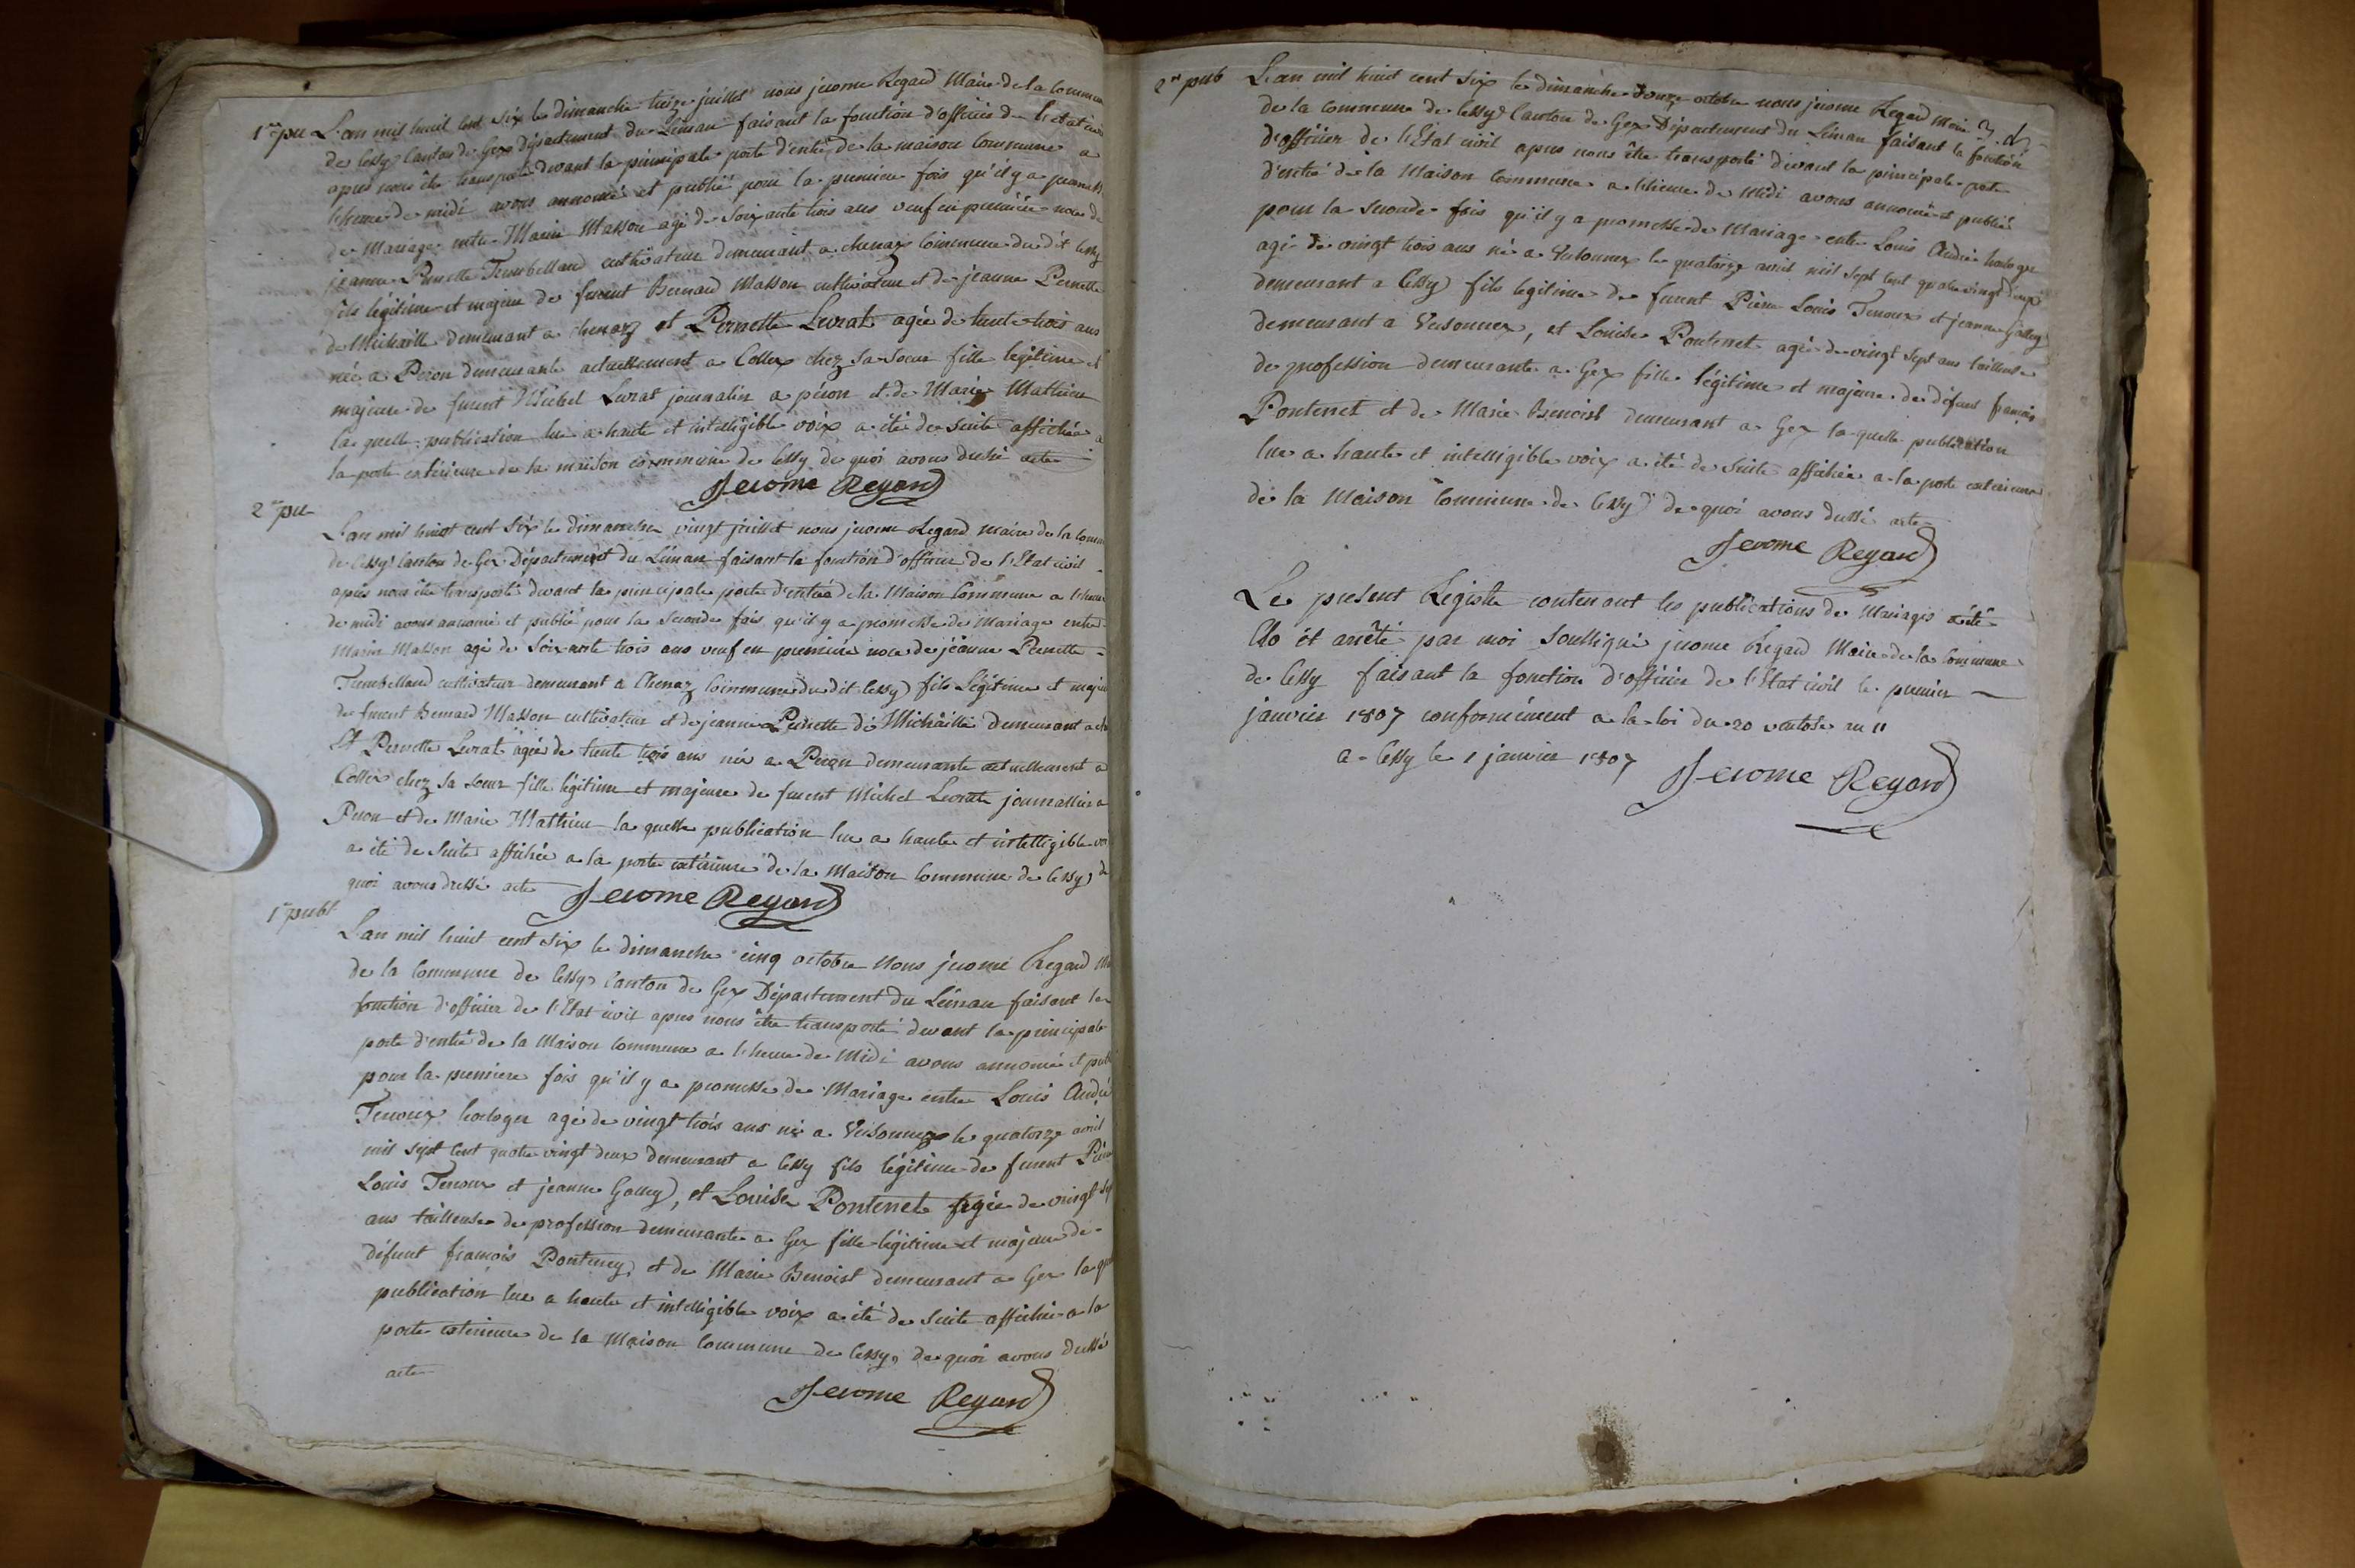 1re pu
L'an mil huit cent Six le dimanche treize juillet nous jerome Regard Maire de la Commune
de Cessy Canton de Gex Département du Léman faisant la fonction d'officier de l'etat civil
apres nous être transporté devant la principale porte d'entré de la maison Commune a
l'heure de midi avons annoncé et publié pour la premiere fois qu'il y a promesse
de Mariage entre Marin Masson agé de Soixante trois ans veuf en premiére noce de
jeanne Pernette Trembelland cultivateur demeurant a chenaz Commune du dit Cessy
fils légitime et majeur de furent Bernard Masson cultivateur et de jeanne Pernette
de Michaille demeurant a chenaz et Pernette Levrat agée de trente trois ans
née a Peron demeurante actuellement a Collex chez sa Soeur fille legitime et
majeure de furent Michel Levrat journalier a péron et de Marie Mathieu
la quelle publication lue a haute et intelligible voix a été de suite affichée a
la porte extérieure de la maison commune de Cessy de quoi avons dressé acte
Jerome Regard
2me pu
L'an mil huit cent Six le dimanche vingt juillet nous jerome Regard maire de la comm
de Cessy Canton de Gex Département du Léman faisant la fonction d'officier de l'Etat civil
apres nous être transporté devant la principale porte d'entreé de la Maison Commune a l'heure
de midi avons annoncé et publié pour la Seconde fois qu'il y a promesse de mariage entre
Marin Masson agé de Soixante trois ans veuf en premiére noce de jéanne Pernette
Trembelland cultivateur demeurant a Chenaz Commune du dit Cessy fils Légitime et majeur
de furent Bernard Masson cultivateur et de jeanne Pernette de Michaille demeurant a
Et Pernette Levrat agée de trente trois ans née a Peron demeurante actuellement a
Collex chez sa soeur fille légitime et majeure de furent Michel Levratte journallier a
Peron et de Marie Mathieu la quelle publication lue a haute et intelligible voi
a été de suite affichée a la porte extérieure de la Maison Commune de Cessy, de
quoi avons dressé acte Jerome Regard
1re publ
L'an mil huit cent Six le dimanche cinq octobre Nous jerome Regard M
de la Commune de Cessy Canton de Gex Département du Léman faisant la
fonction d'officier de l'Etat civil apres nous être transporté devant la principale
porte d'entré de la Maison Commune a l'heure de Midi avons annoncé et publ
pour la premiere fois qu'il y a promesse de Mariage entre Louis André
Tenoux horloger agé de vingt trois ans né a Vesonnex le quatorze avril
mil sept cent quatre vingt deux demeurant a Cessy fils légitime de furent Pierr
Louis Tenoux et jeanne Galley, et Louise Pontenet agée de vingt sep
ans tailleuse de profession demeurante a Gex fille légitime et majeure de
défunt françois Ponteney, et de Marie Benoist demeurant a Gex la qu
publication lue a haute et intelligible voix a été de suite affichée a la
porte exterieure de la Maison Commune de Cessy, de quoi avons dressé
acte
Jerome Regard
2me pub
L'an mil huit cent Six le dimanche douze octobre nous jerome Regard Maire
de la Commune de Cessy Canton de Gex Département du Léman faisant la fonction
d'officier de l'Etat civil apres nous être transporté devant la principale porte
d'entré de la Maison Commune a l'heure de Midi avons annoncé et publié
pour la Seconde fois qu'il y a promesse de Mariage entre Louis André horloger
agé de vingt trois ans né a Vesonnex le quatorze avril mil sept cent quatrevingt deux
demeurant a Cessy fils legitime de furent Pierre Louis Tenoux et jeanne Galley
demeurant a Vesonnex, et Louise Pontenet agée de vingt sept ans tailleuse
de profession demeurante a Gex fille légitime et majeure de défunt françois
Pontenet et de Marie Benoist demeurant a Gex la quelle publication
lue a haute et intelligible voix a été de suite affichée a la porte exterieure
de la Maison Commune de Cessy de quoi avons dressé acte
Jerome Regard
Le present Registre contenant les publications de Mariages a été
Clo et arrêté par moi Soussigné jerome Regard Maire de la Commune
de Cessy faisant la fonction d'officier de l'Etat civil le premier
janvier 1807 conformément a la loi du 20 ventose an 11
a Cessy le 1 janvier 1807
Jerome Regard